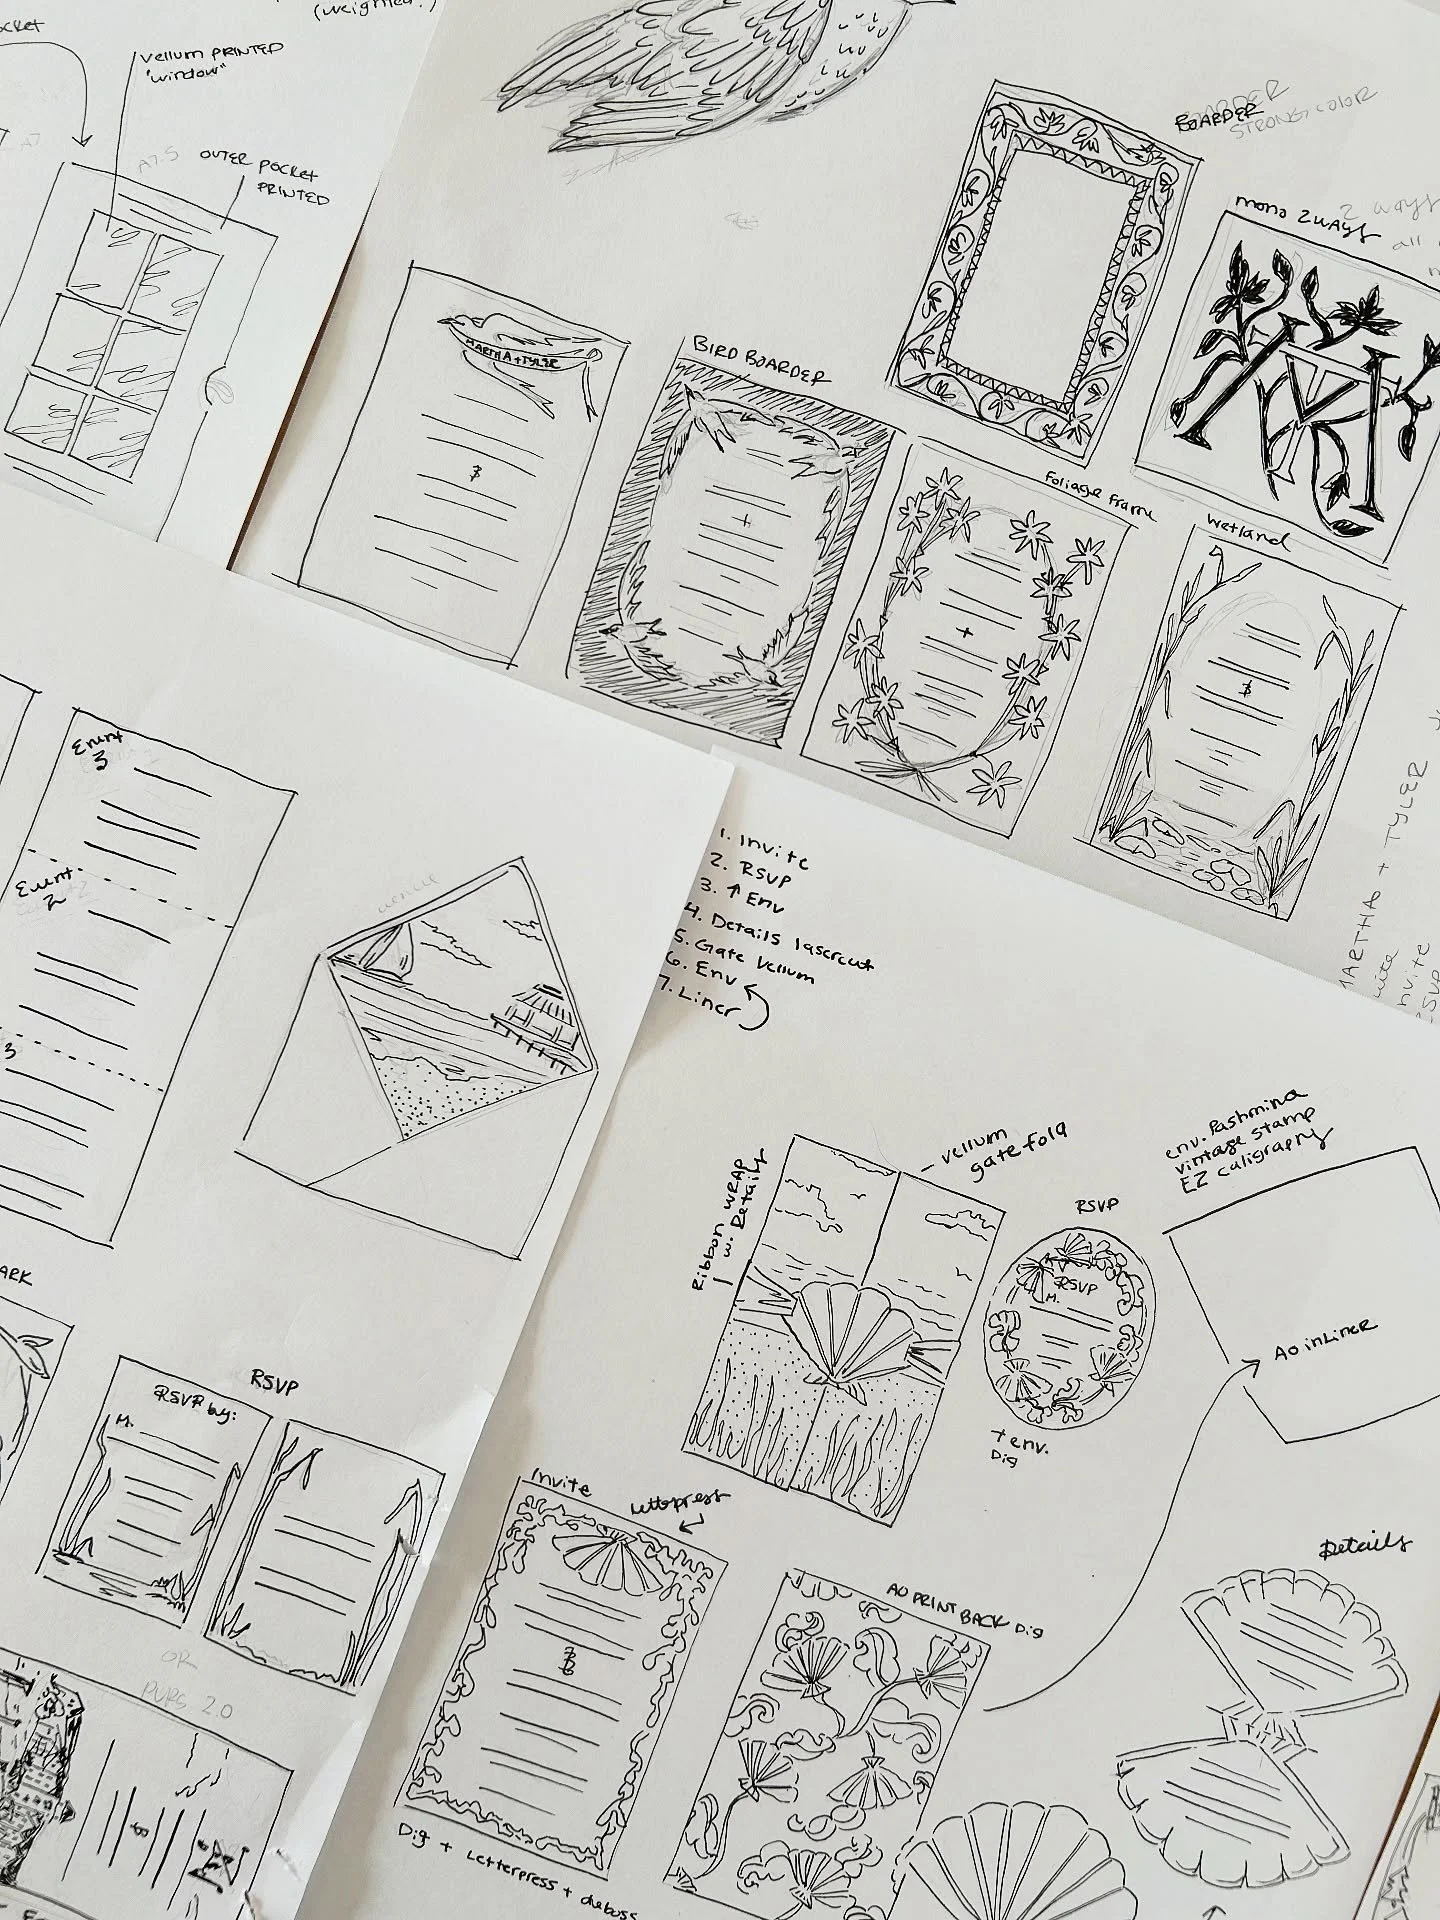 (weighted?)
Vellum PRINTED
"window"
OUTER POCKET
PRINTED
A7.5
BOARDER
BOARDER
STRONG COLOR
mono 2 WAYS
2 ways
all
MARTHA + TYLER
BIRD BOARDER
Foliage Frame
Wetland
MARTHA + TYLER
Event
3
Event
2
3
1. Invite
2. RSVP
3. ↑ Env
4. Details lasercut
5. Gate Vellum
6. Env
7. Liner
Ribbon WRAP
w. Details
- vellum
gate fold
RSVP
RSVP
M.
+ env.
Dig
env. Pashmina
vintage stamp
EZ caligraphy
AO in Liner
RSVP
RSVP by:
M.
OR
Invite
Letterpress
Dig + Letterpress + duboss
AO PRINT BACK Dig
Details